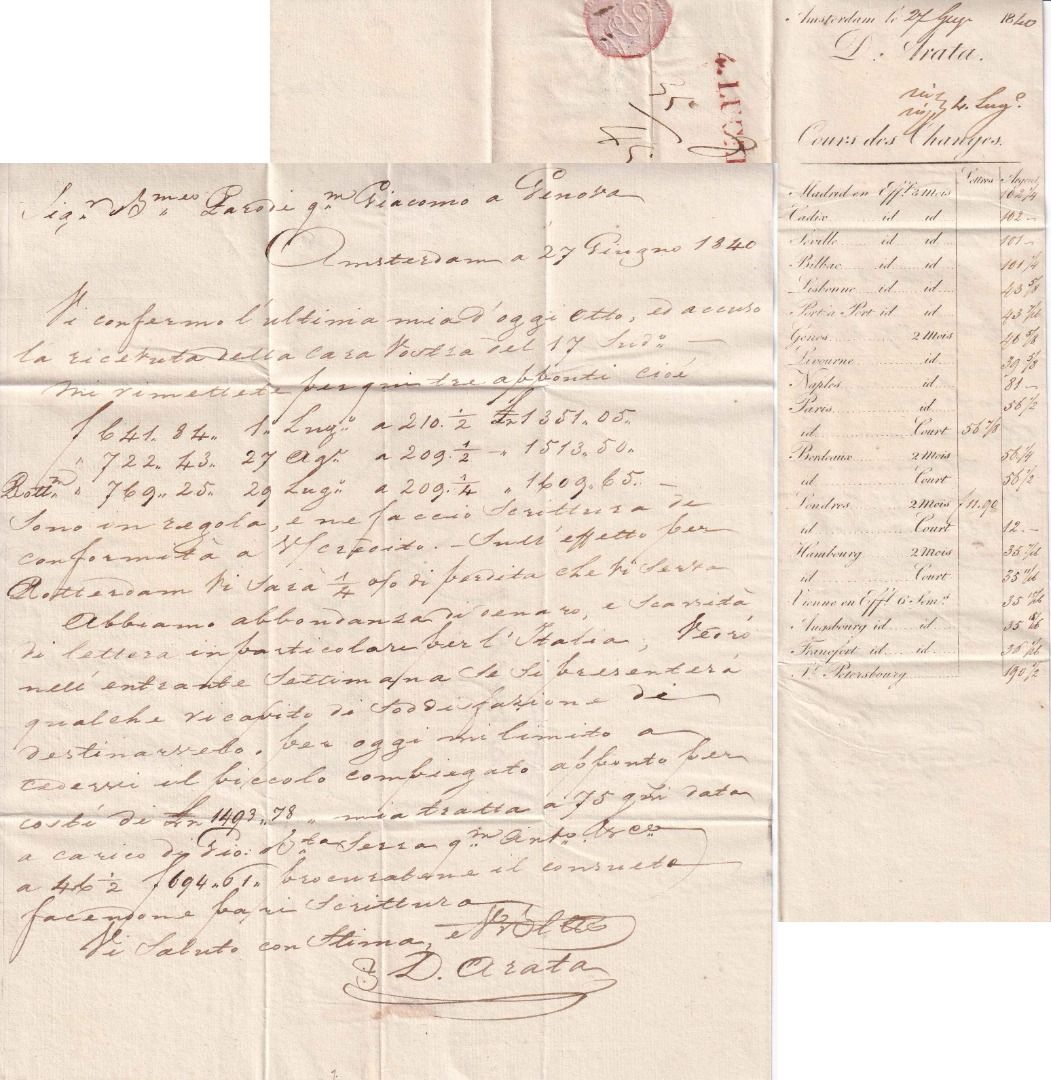 Sigr. Bmeo Parodi qm Giacomo a Genova
Amsterdam a 27 Giugno 1840
Vi confermo l'ultima mia d'oggi otto, ed accuso
la ricevuta della cara Vostra del 17 Sudo. —
Mi rimettete per qui tre apponti cioé
f 641.. 84.. 1.. Lugo. a 210. 1/2 Ln 1351. 05.
" 722.. 43. 27 Ago. a 209. 1/2 " 1513. 50.
Rottm " 769.. 25. 29 Lugo. a 209. 1/4 " 1609. 65. —
Sono in regola, e ne faccio Scrittura de
conformità a V/ credito. — Sull'effetto per
Rotterdam Vi Sarà 1/4 % di perdita che Vi Serva
Abbiamo abbondanza di denaro, e Scarsità
di lettera in particolare per l'Italia, Vedrò
nell'entrante Settimana Se Si presenterá
qualche ricapito di Soddisfazione de
destinarvelo. per oggi mi limito a
cedervi il piccolo compiegato apponto per
costí de Ln 1493.. 78 " mia tratta a 75 gni data
a carico di Gio. Bta Serra qm Anto.
a 46 1/2 f 694.. 61.. procuratene il consueto
facendone pari Scrittura
Vi Saluto con Stima, e
D. Arata
4. LUG
35
Amsterdam le 27 Giugo 1840
D. Arata.
4. Lugo.
Cours des Changes.
Lettres Argent
Madrid en Efft. 3 Mois 102 1/4
Cadix id id 102 —
Seville id id 101 —
Bilbao id id 101 1/4
Lisbonne id id 43 5/8
Port a Port id id 43 7/16
Génes 2 Mois 46 5/8
Livourne id 39 5/8
Naples id 81 —
Paris id 56 1/2
id Court 56 7/8
Bordeaux 2 Mois 56 1/4
id Court 56 1/2
Londres 2 Mois f 11.90
id Court 12. —
Hambourg 2 Mois 35 7/16
id Court 35 11/16
Vienne en Efft. 6 Sem. 35
Augsbourg id id 35
Francfort id id
St. Petersbourg 190 1/2